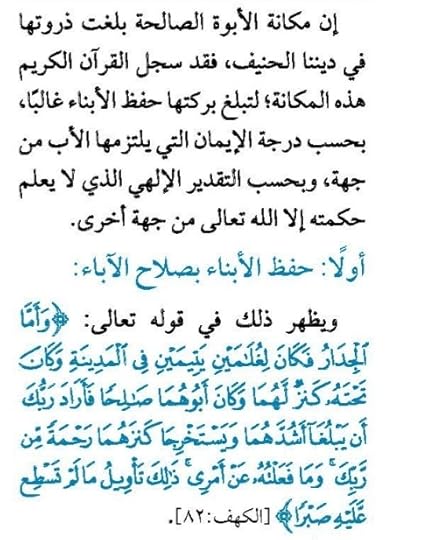 إن مكانة الأبوة الصالحة بلغت ذروتها
في ديننا الحنيف، فقد سجل القرآن الكريم
هذه المكانة؛ لتبلغ بركتها حفظ الأبناء غالبًا،
بحسب درجة الإيمان التي يلتزمها الأب من
جهة، وبحسب التقدير الإلهي الذي لا يعلم
حكمته إلا الله تعالى من جهة أخرى.
أولًا: حفظ الأبناء بصلاح الآباء:
ويظهر ذلك في قوله تعالى: ﴿وَأَمَّا
ٱلْجِدَارُ فَكَانَ لِغُلَٰمَيْنِ يَتِيمَيْنِ فِى ٱلْمَدِينَةِ وَكَانَ
تَحْتَهُۥ كَنزٌ لَّهُمَا وَكَانَ أَبُوهُمَا صَٰلِحًا فَأَرَادَ رَبُّكَ
أَن يَبْلُغَآ أَشُدَّهُمَا وَيَسْتَخْرِجَا كَنزَهُمَا رَحْمَةً مِّن
رَّبِّكَ ۚ وَمَا فَعَلْتُهُۥ عَنْ أَمْرِى ۚ ذَٰلِكَ تَأْوِيلُ مَا لَمْ تَسْطِع
عَّلَيْهِ صَبْرًا﴾ [الكهف: ٨٢].